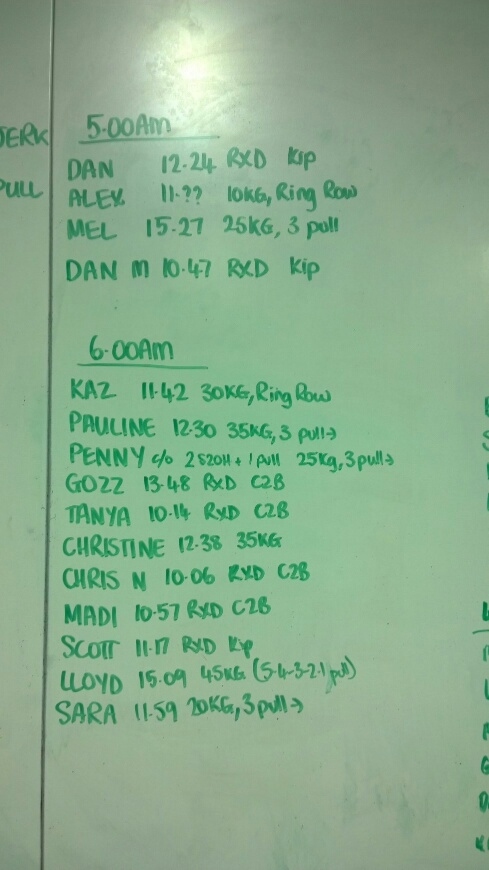 JERK
PULL
5.00Am
DAN 12.24 RXD Kip
ALEX 11.?? 10KG, Ring Row
MEL 15.27 25KG, 3 pull
DAN M 10.47 RXD Kip
6.00Am
KAZ 11.42 30KG, Ring Row
PAULINE 12.30 35KG, 3 pull→
PENNY c/o 2 S2OH + 1 pull 25Kg, 3 pull→
GOZZ 13.48 RXD C2B
TANYA 10.14 RXD C2B
CHRISTINE 12.38 35KG
CHRIS N 10.06 RXD C2B
MADI 10.57 RXD C2B
SCOTT 11.17 RXD Kip
LLOYD 15.09 45KG (5-4-3-2-1 pull)
SARA 11.59 20KG, 3 pull→